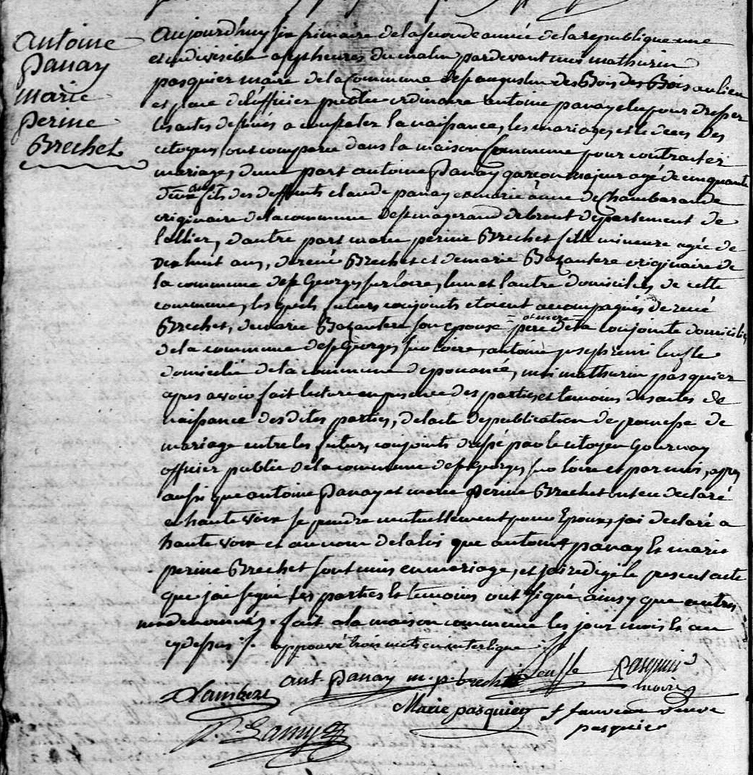 Antoine
Panay
marie
perine
Brechet
Aujourdhuy six frimaire de la seconde année de la republique une
et indivisible a sept heures du matin pardevant moi mathurin
pasquier maire de la commune de st augustin des Bois au lieu
et place de l'officier public ordinaire antoine panay elu pour dresser
les actes destinés a constater la naissance, les mariages, et le deces des
citoyens sont comparu dans la maison commune pour contracter
mariage, d'une part antoine Panay garcon majeur agé de cinquante
deux ans fils des deffunts claude panay et marie anne de chambarande
originaire de la commune de st de bront departement de
l'allier, d'autre part marie perine Brechet fille mineure agée de
dix huit ans, de rené Brechet et de marie Bazantere originaire de
la commune de st Georges sur loire, l'un et l'autre domiciliés de cette
commune, les quels futurs conjoints etoient accompagnés de rené
Brechet, de marie Bazantere son epouse pere et mere de la conjointe domiciliés
de la commune de st Georges sur loire, antoine joseph henri
domicilié de la commune de pouancé, moi mathurin pasquier
apres avoir fait lecture en presence des parties et temoins des actes de
naissance des dites parties, de l'acte de publication de promesse de
mariage entre les futurs conjoints dressé par le citoyen
officier public de la commune de st Georges sur loire et par moi, apres
aussi que antoine Panay et marie perine Brechet ont eu declaré
a haute voix se prendre mutuellement pour Epoux, j'ai declaré a
haute voix et au nom de la loi que antoine panay et marie
perine Brechet sont unis en mariage, et j'ai redigé le present acte
que j'ai signé les parties et temoins ont signé ainsy que autres
fait a la maison commune les jour mois et an
cy dessus approuvé trois mots en interligne
ant Panay m. p. brechet Pasquier
maire
Marie pasquier f fauveau veuve
pasquier